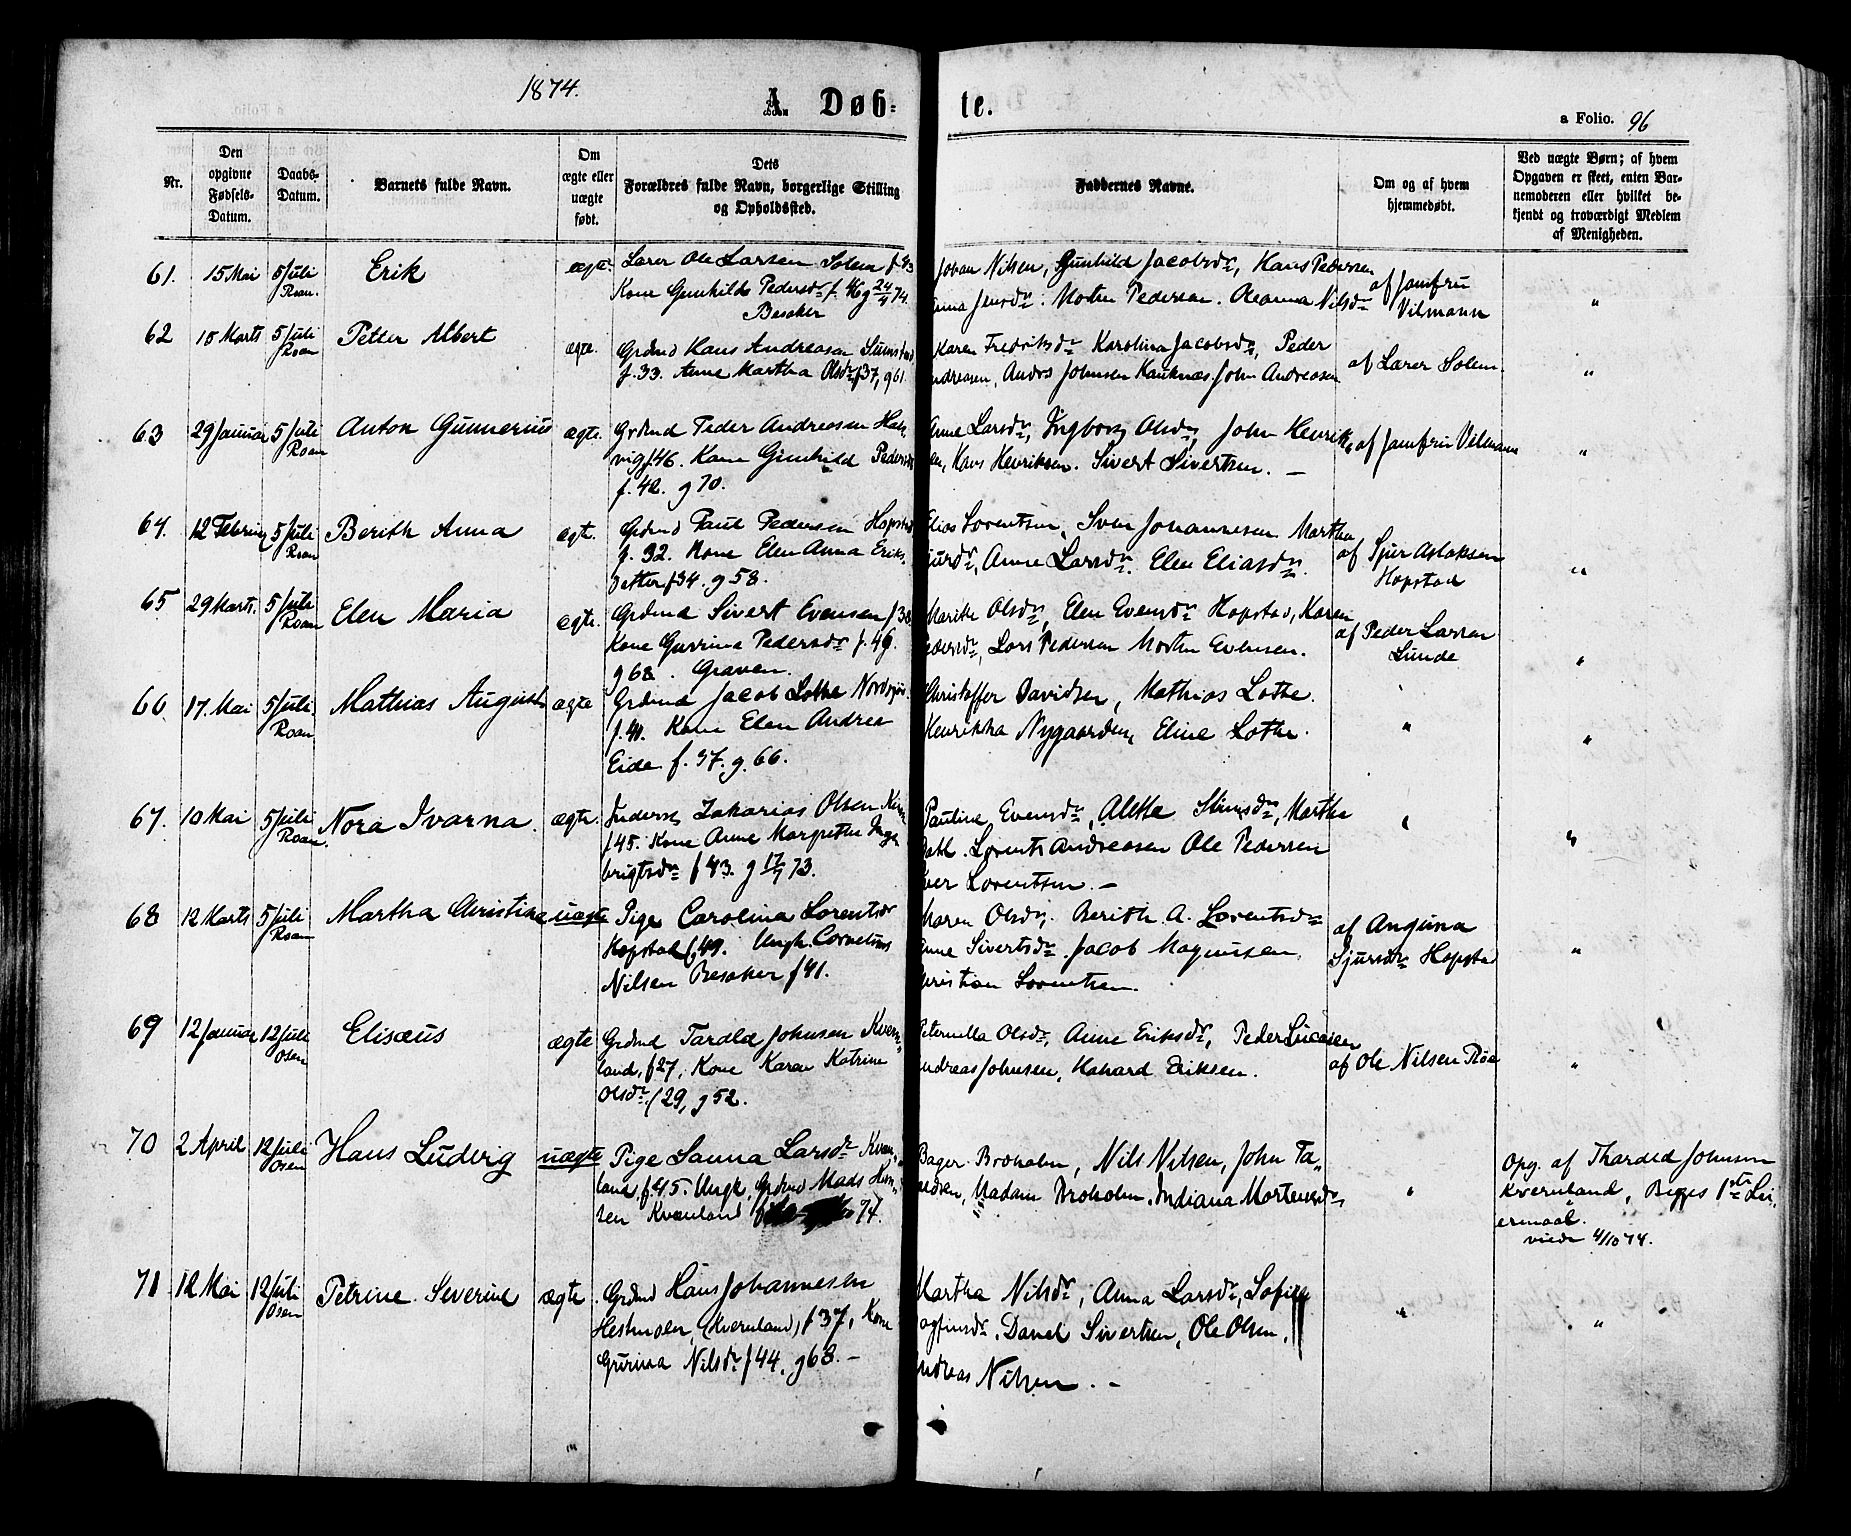 1874.
A. Døb-
te.
a Folio. 96
Nr.
Den opgivne Fødsels-Datum.
Daabs-Datum.
Barnets fulde Navn.
Om ægte eller uægte født.
Dets Forældres fulde Navn, borgerlige Stilling og Opholdssted.
Faddernes Navne.
Om og af hvem hjemmedøbt.
Ved uægte Børn; af hvem Opgaven er skeet, enten Bar-nemoderen eller hvilket be-kjendt og troværdigt Medlem af Menigheden.
61. 15 Mai 5 Juli Roan. Erik ægte.
Lærer Ole Larsen Solem f. 43
Kone Gunhild Pedersdr f. 46 g 24/4 74.
Besaker
Johan Nilsen, Gunhild Jacobsdr, Hans Pedersen
Anna Jensdr. Morten Pedersen. Oleanna Nilsdr
af Jomfru
Vilmann
"
62 15 Marts 5 Juli Roan Petter Albert ægte.
Grdmd Hans Andreasen Sumstad
f. 33. Anne Martha Olsdr f 37, g 61.
Karen Fredriksdr Karolina Jacobsdr, Peder
Andreasen, Anders Johnsen Kauknæs, John Andreasen
af Lærer Solem.
"
63 29 Januar 5 Juli Roan Anton Gunnerius ægte.
Grdmd Peder Andreasen Hak-
vig f 46. Kone Gunhild Pedersdr
f. 42. g 70.
Anne Larsdr, Ingborg Olsdr, John Henrik-
sen, Hans Henriksen. Sivert Sivertsen. —
af Jomfru Vilmann
"
64. 12 Februar 5 Juli Roan Berith Anna ægte.
Grdmd Paul Pedersen Hopstad
f. 32. Kone Elen Anna Eriks-
datter f 34. g 58.
Elias Lorentsen, Sven Johannesen Martha
Sjursdr, Anne Larsdr. Elen Eliasdr
af Sjur Aslaksen
Hopstad
"
65 29 Marts. 5 Juli Roan Elen Maria ægte.
Grdmd Sivert Evensen f 38
Kone Gurrina Pedersdr f. 46.
g 68. Graven.
Marith Olsdr, Elen Evensdr Hopstad, Karen
Pedersdr, Lars Pedersen Morten Evensen.
af Peder Larsen
Lunde
"
66. 17. Mai 5 Juli. Roan Mathias August ægte
Grdmd Jacob Lothe
f. 41. Kone Elen Andrea
Eide f. 37. g. 66.
Christoffer Davidsen, Mathias Lothe.
Henrikka Nygaarden, Eline Lothe.
"
"
67. 10 Mai 5 Juli Roan. Nora Ivarna. ægte.
Inderst Zakarias Olsen
f 45. Kone Anne Margrethe Inge-
brigtsdr f 43. g 17/7 73.
Pauline Evensdr, Alette Simsdr, Martha
Lorents Andreasen Ole Pedersen
Iver Lorentsen. —
"
"
68 12 Marts 5 Juli Roan Martha Christine uægte
Pige Carolina Lorentsdr
Hopstad f. 49. Ungk. Cornelius
Nilsen Besaker f 41.
Maren Olsdr. Berith A. Lorentsdr
Anne Sivertsdr. Jacob Magnussen
Christian Lorentsen.
af Anguna
Sjursdr Hopstad
"
69 12 Januar 12 Juli Osen Elisæus ægte
Grdmd Tarald Johnsen Kvern-
land, f 27, Kone Karen Katrine
Olsdr. f 29, g 52.
Peternilla Olsdr, Anne Eriksdr, Peder Lucasen
Andreas Johnsen, Havard Eriksen.
af Ole Nilsen Røe
"
70 2 April 12 Juli Osen Hans Ludvig uægte
Pige Sanna Larsdr Kvern-
land, f 45. Ungk. Grdmd Mads Han-
sen Kvernland 74.
Bager Broholm, Nils Nilsen, John Ta-
raldsen, Madam Broholm. Indiana Mortensdr
"
Opg. af Thardld Johnsen
Kvernland, Begges 1ste Lei-
ermaal.
viede 4/10 74.
71 12 Mai 12 Juli Osen Petrine Severine ægte
Grdmd Hans Johannesen
Hestmoen, (Kvernland) f 37, Kone
Gurina Nilsdr f 44. g 68. —
Martha Nilsdr, Anna Larsdr, Sofie
Daniel Sivertsen, Ole Olsen,
Andreas Nilsen. —
"
"